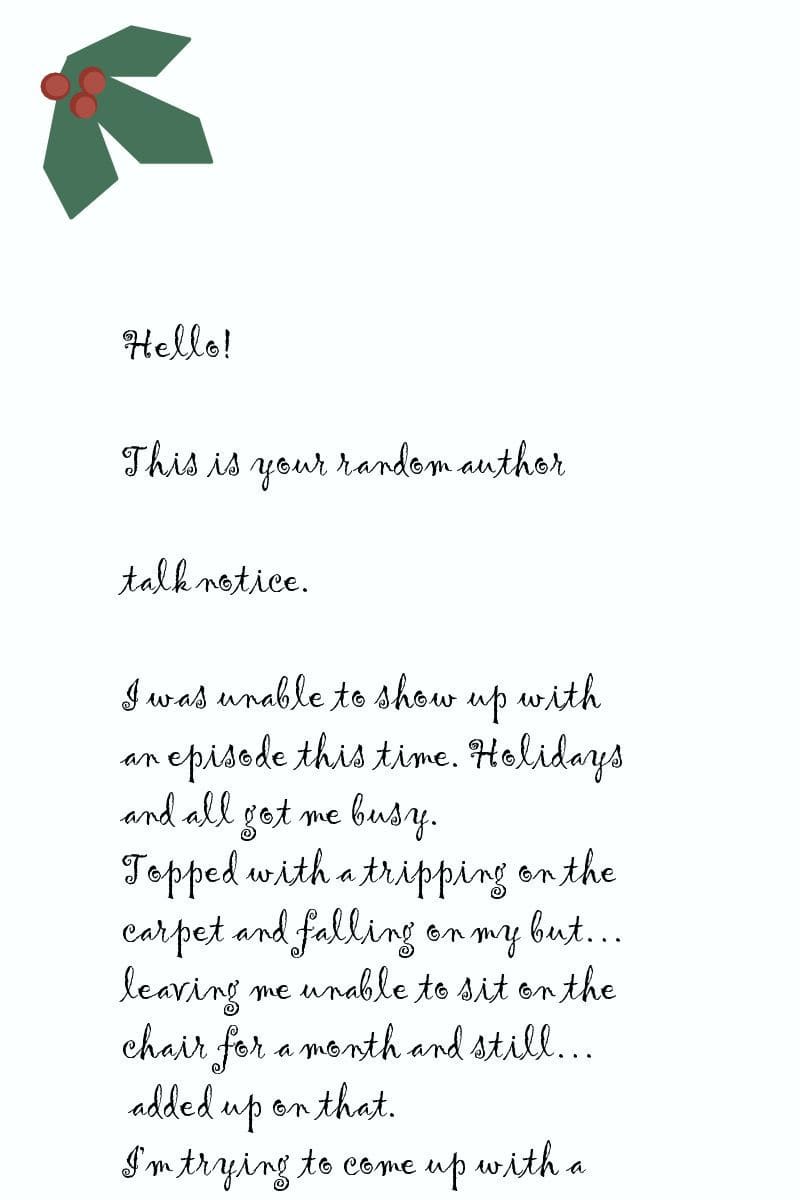 Hello!
This is your random author
talk notice.
I was unable to show up with
an episode this time. Holidays
and all got me busy.
Topped with a tripping on the
carpet and falling on my but...
leaving me unable to sit on the
chair for a month and still...
added up on that.
I'm trying to come up with a